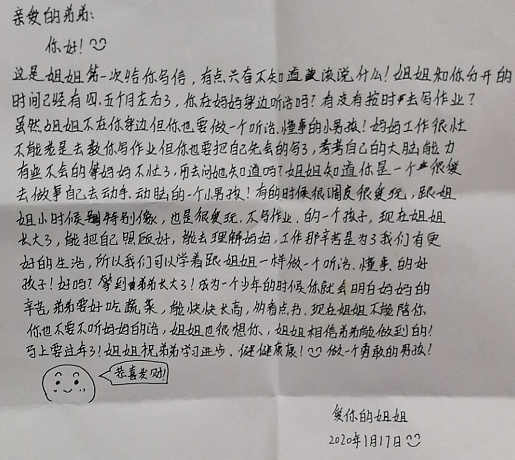 亲爱的弟弟:
你好!
这是姐姐第一次给你写信，有点只有不知道该说什么!姐姐和你分开的
时间已经有四、五个月左右了，你在妈妈身边听话吗?有没有按时去写作业?
虽然姐姐不在你身边但你也要做一个听话、懂事的小男孩!妈妈工作很忙
不能老是去教你写作业但你也要把自己先会的写了，考考自己的大脑能力
有些不会的等妈妈不忙了，再去问她知道吗?姐姐知道你是一个很爱
去做事自己去动手、动脑的一个小男孩!有的时候很调皮很爱玩，跟姐
姐小时候特别像，也是很爱玩、不写作业、的一个孩子，现在姐姐
长大了，能把自己照顾好，能去理解妈妈，工作那辛苦是为了我们有更
好的生活，所以我们可以学着跟姐姐一样做一个听话、懂事、的好
孩子!好吗?等到弟弟长大了!成为一个少年的时候你就会明白妈妈的
辛苦，弟弟要好吃蔬菜，能快快长高，多看点书、现在姐姐不能陪你
你也不要不听妈妈的话，姐姐也很想你，姐姐相信弟弟能做到的!
马上要过年了!姐姐祝弟弟学习进步、健健康康!做一个勇敢的男孩!
恭喜发财!
爱你的姐姐
2020年1月17日